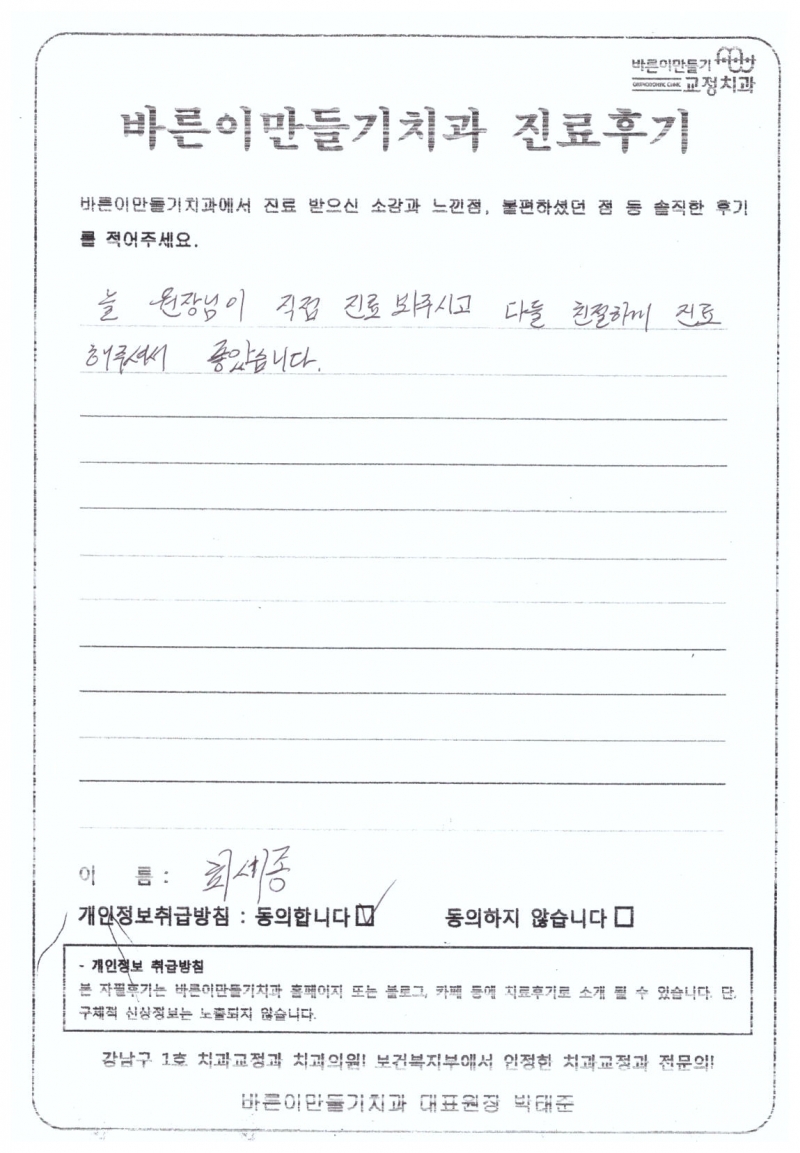 바른이만들기
ORTHODONTIC CLINIC 교정치과
바른이만들기치과 진료후기
바른이만들기치과에서 진료 받으신 소감과 느낀점, 불편하셨던 점 등 솔직한 후기
를 적어주세요.
늘 원장님이 직접 진료 봐주시고 다들 친절하게 진료
해주셔서 좋았습니다.
이 름 : 최세종
개인정보취급방침 : 동의합니다 ☑ 동의하지 않습니다 ☐
- 개인정보 취급방침
본 자필후기는 바른이만들기치과 홈페이지 또는 블로그, 카페 등에 치료후기로 소개 될 수 있습니다. 단,
구체적 신상정보는 노출되지 않습니다.
강남구 1호 치과교정과 치과의원! 보건복지부에서 인정한 치과교정과 전문의!
바른이만들기치과 대표원장 박태준